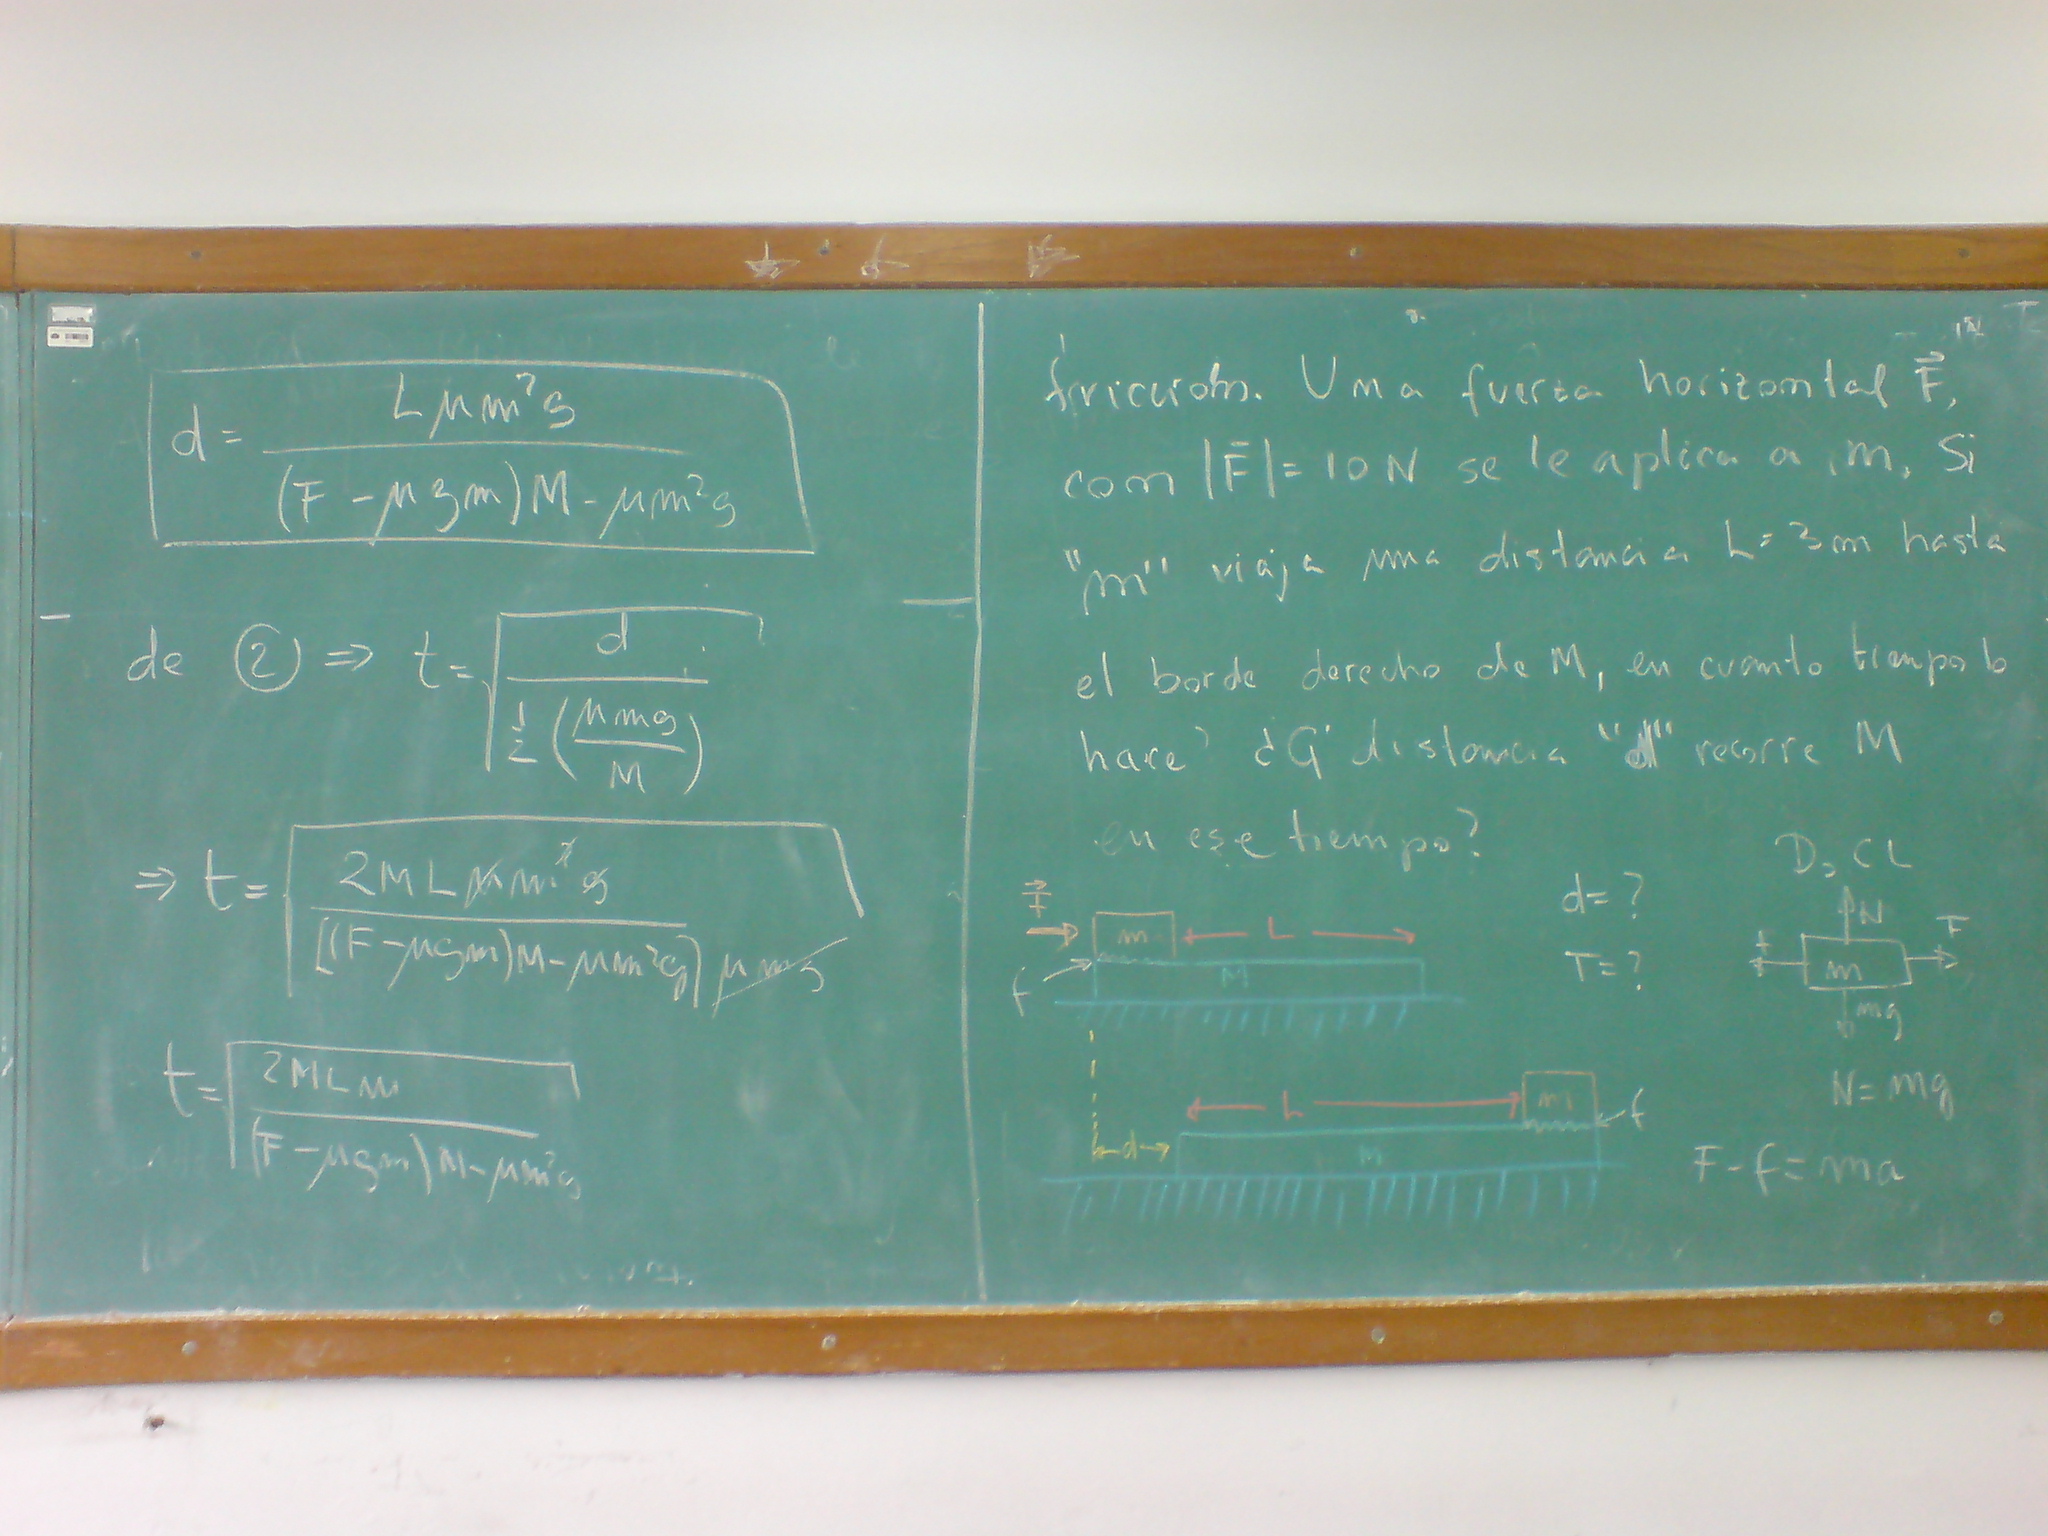 d = Lμm²g / (F - μgm)M - μm²g
de ② ⇒ t = √(d / ½(μmg / M))
⇒ t = √(2MLμm²g / [(F - μgm)M - μm²g] μmg)
t = √(2MLm / (F - μgm)M - μm²g)
fricción. Una fuerza horizontal F⃗,
con |F⃗| = 10 N se le aplica a m. Si
"m" viaja una distancia L = 3m hasta
el borde derecho de M, en cuanto tiempo lo
hace? ¿Q' distancia "d" recorre M
en ese tiempo?
F⃗
m
L
M
f
d = ?
T = ?
D, CL
N
f
m
F
mg
N = mg
F - f = ma
L
m
f
d
M